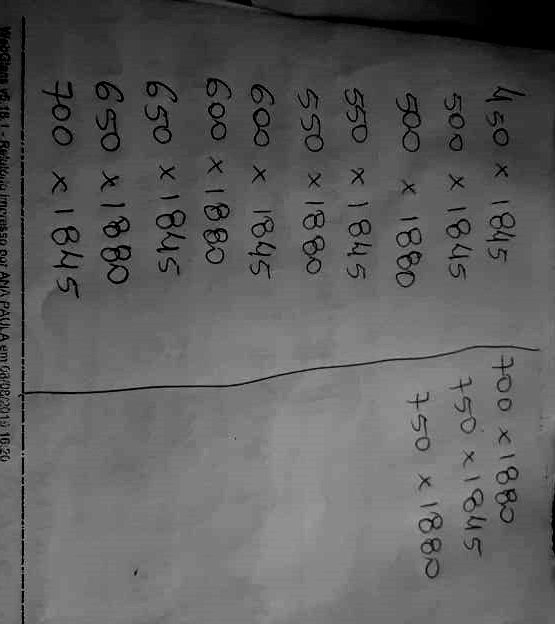 450 x 1845
500 x 1845
500 x 1880
550 x 1845
550 x 1880
600 x 1845
600 x 1880
650 x 1845
650 x 1880
700 x 1845
700 x 1880
750 x 1845
750 x 1880
Relatório impresso por ANA PAULA em